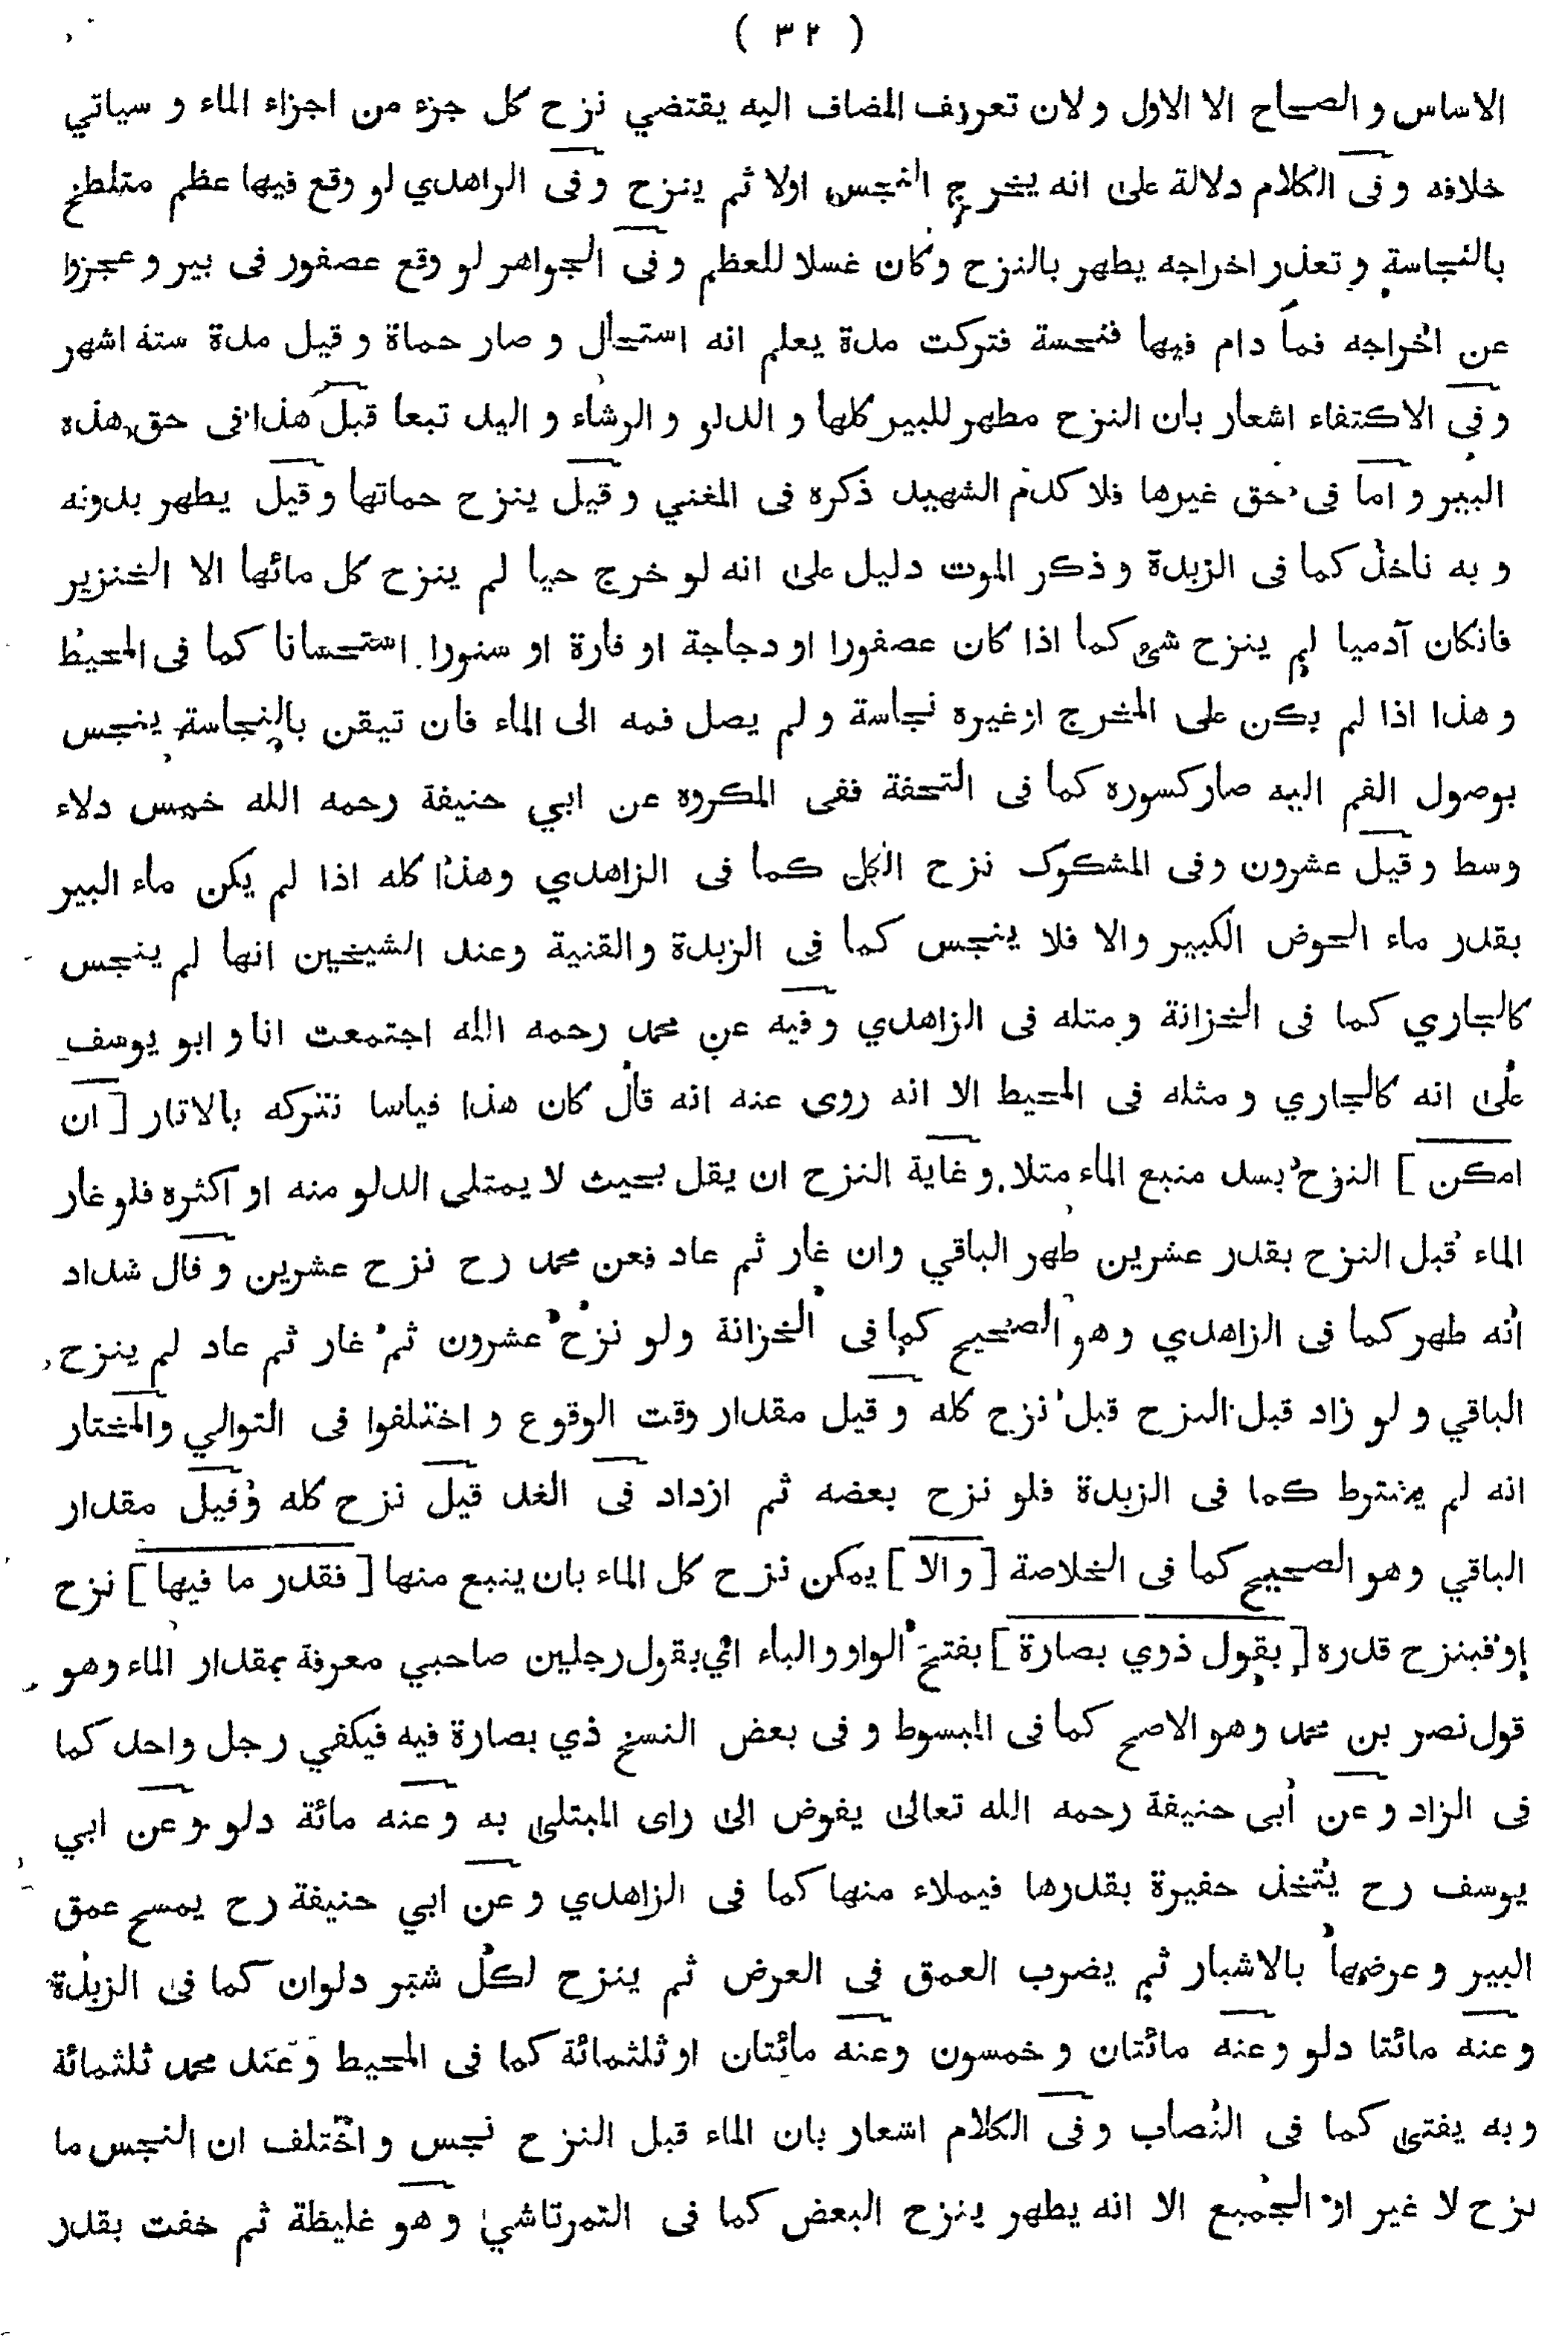 ( ٣٢ )
الاساس و الصحاح الا الاول و لان تعريف المضاف اليه يقتضي نزح كل جزء من اجزاء الماء و سياتي
خلافه و فى الكلام دلالة على انه يخرج النجس اولا ثم ينزح و فى الزاهدي لو وقع فيها عظم متلطخ
بالنجاسة و تعذر اخراجه يطهر بالنزح و كان غسلا للعظم و فى الجواهر لو وقع عصفور فى بير و عجزوا
عن اخراجه فما دام فيها فنجسة فتركت مدة يعلم انه استحال و صار حماة و قيل مدة ستة اشهر
و فى الاكتفاء اشعار بان النزح مطهر للبير كلها و الدلو و الرشاء و اليد تبعا قبل هذا فى حق هذه
البير و اما فى حق غيرها فلا كدم الشهيد ذكره فى المغني و قيل ينزح حماتها و قيل يطهر بدونه
و به ناخذ كما فى الزبدة و ذكر الموت دليل على انه لو خرج حيا لم ينزح كل مائها الا الخنزير
فانكان آدميا لم ينزح شئ كما اذا كان عصفورا او دجاجة او فارة او سنورا استحسانا كما فى المحيط
و هذا اذا لم يكن على المخرج او غيره نجاسة و لم يصل فمه الى الماء فان تيقن بالنجاسة ينجس
بوصول الفم اليه صار كسوره كما فى التحفة ففى المكروه عن ابي حنيفة رحمه الله خمس دلاء
وسط و قيل عشرون و فى المشكوك نزح الكل كما فى الزاهدي و هذا كله اذا لم يكن ماء البير
بقدر ماء الحوض الكبير و الا فلا ينجس كما فى الزبدة و القنية و عند الشيخين انها لم ينجس
كالجاري كما فى الخزانة و مثله فى الزاهدي و فيه عن محمد رحمه الله اجتمعت انا و ابو يوسف
على انه كالجاري و مثله فى المحيط الا انه روى عنه انه قال كان هذا قياسا نتركه بالاثار [ ان
امكن ] النزح بسد منبع الماء مثلا و غاية النزح ان يقل بحيث لا يمتلى الدلو منه او اكثره فلو غار
الماء قبل النزح بقدر عشرين طهر الباقي و ان غار ثم عاد فعن محمد رح نزح عشرين و قال شداد
انه طهر كما فى الزاهدي و هو الصحيح كما فى الخزانة و لو نزح عشرون ثم غار ثم عاد لم ينزح
الباقي و لو زاد قبل النزح قبل نزح كله و قيل مقدار وقت الوقوع و اختلفوا فى التوالي و المختار
انه لم يشترط كما فى الزبدة فلو نزح بعضه ثم ازداد فى الغد قيل نزح كله و قيل مقدار
الباقي و هو الصحيح كما فى الخلاصة [ و الا ] يمكن نزح كل الماء بان ينبع منها [ فقدر ما فيها ] نزح
او فبنزح قدره [ بقول ذوي بصارة ] بفتح الواو و الباء اي بقول رجلين صاحبي معرفة بمقدار الماء و هو
قول نصر بن محمد و هو الاصح كما فى المبسوط و فى بعض النسخ ذي بصارة فيه فيكفي رجل واحد كما
فى الزاد و عن ابى حنيفة رحمه الله تعالى يفوض الى راى المبتلى به و عنه مائة دلو و عن ابي
يوسف رح يتخذ حفيرة بقدرها فيملاء منها كما فى الزاهدي و عن ابي حنيفة رح يمسح عمق
البير و عرضها بالاشبار ثم يضرب العمق فى العرض ثم ينزح لكل شبر دلوان كما فى الزبدة
و عنه مائتا دلو و عنه مائتان و خمسون و عنه مائتان او ثلثمائة كما فى المحيط و عند محمد ثلثمائة
و به يفتى كما فى النصاب و فى الكلام اشعار بان الماء قبل النزح نجس و اختلف ان النجس ما
نزح لا غير او الجميع الا انه يطهر ينزح البعض كما فى التمرتاشي و هو غليظة ثم خفت بقدر